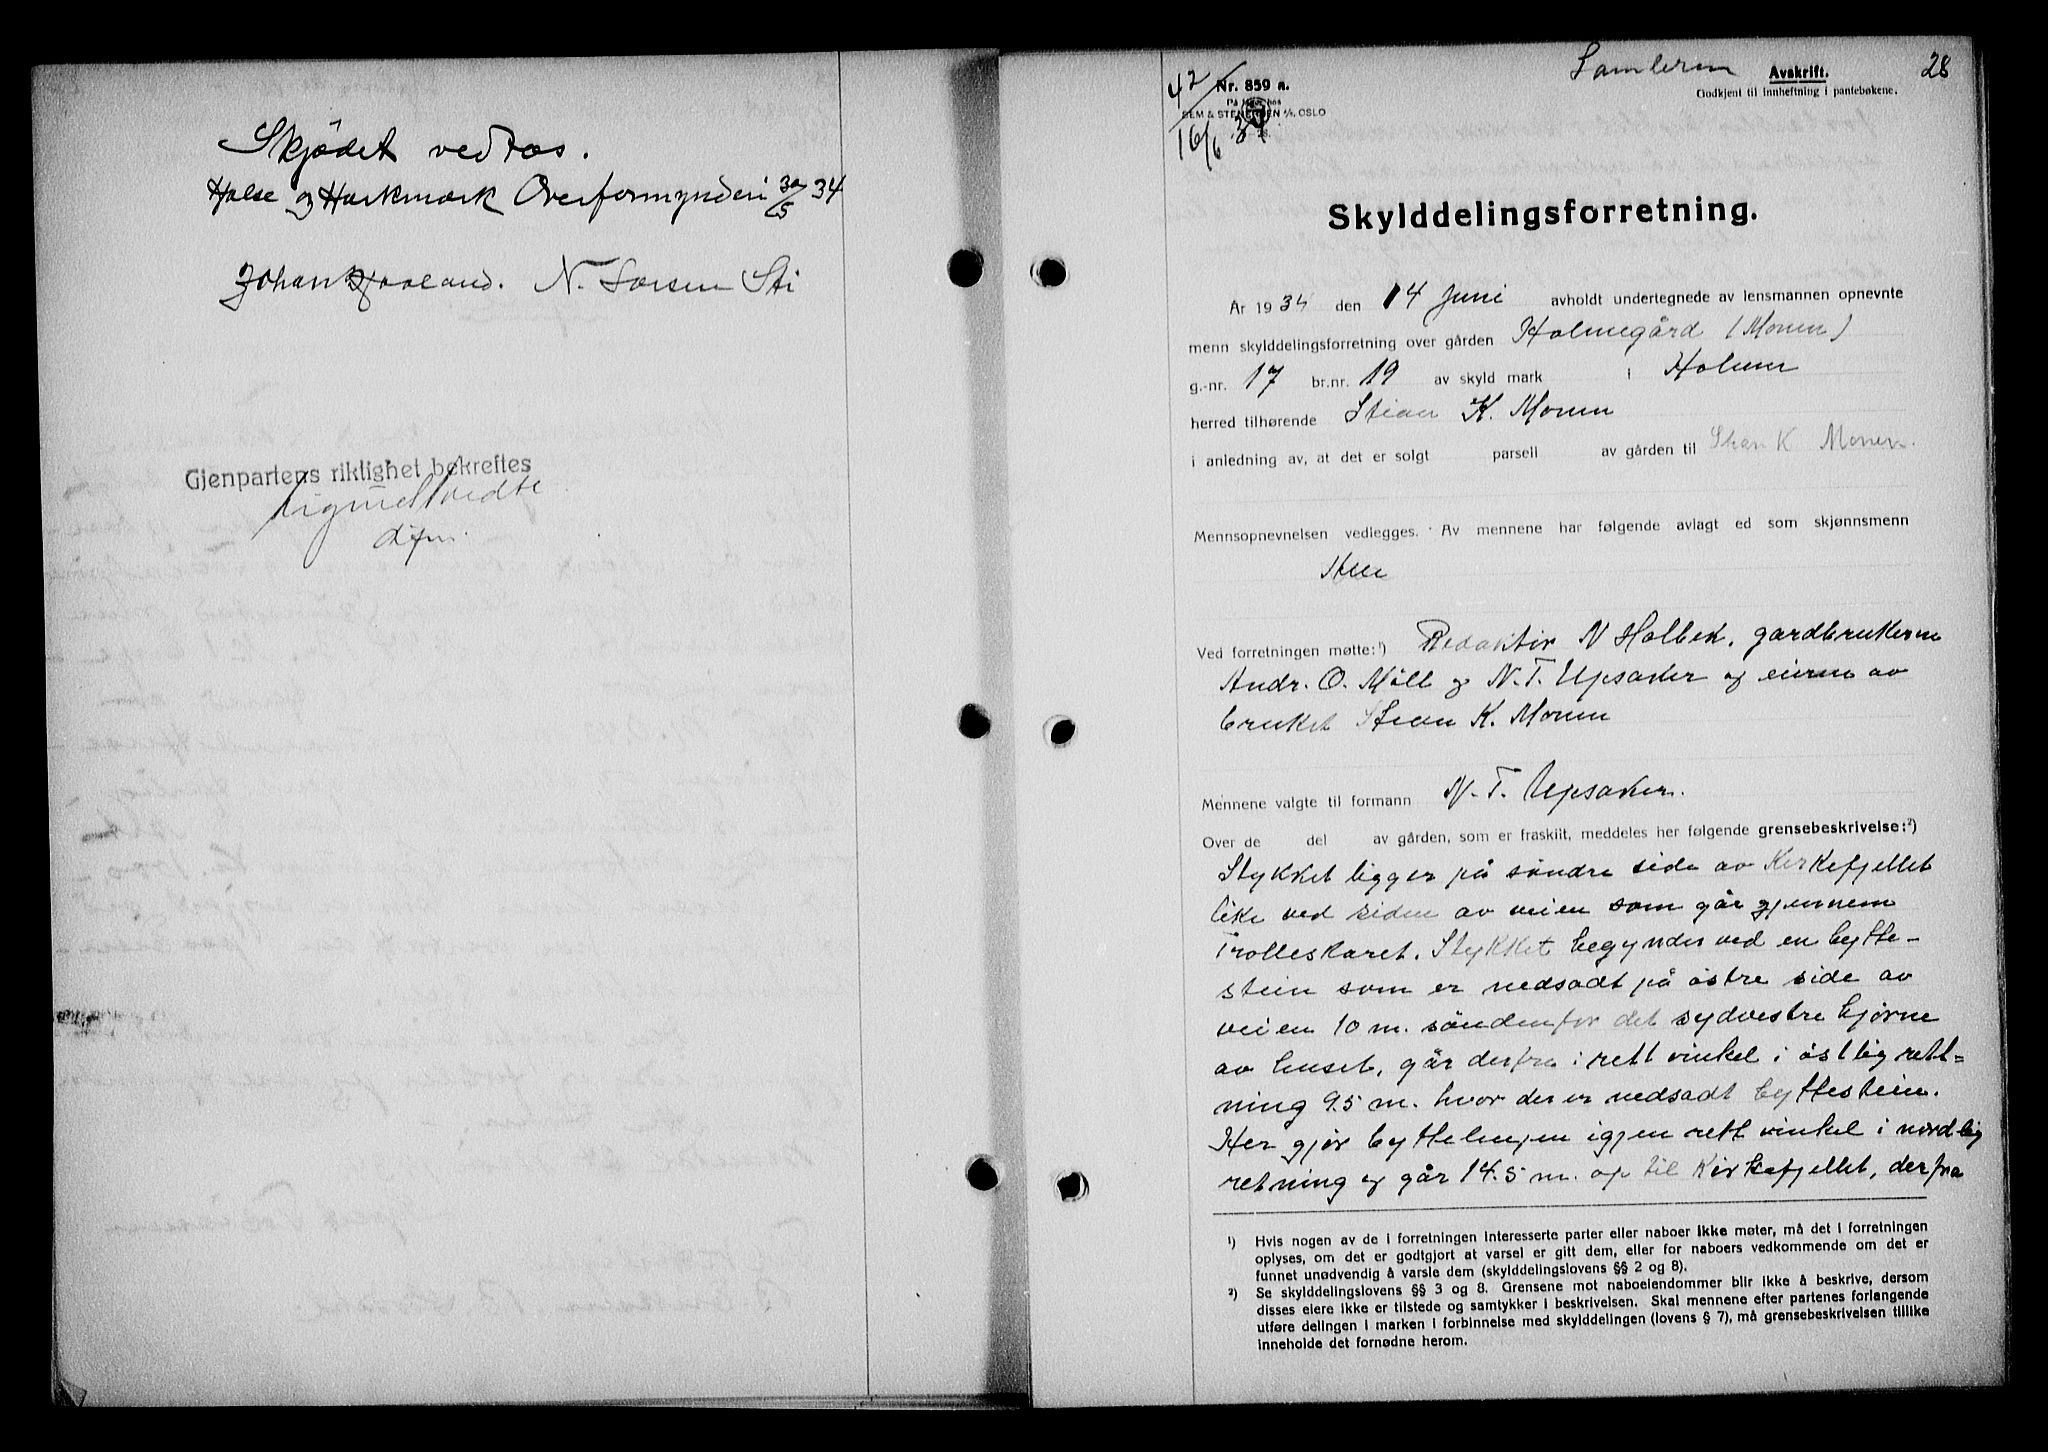 Skjødet vedtas.
Halse og Harkmark Overformynderi 30/5 34
Johan N.
Gjenpartens riktighet bekreftes
42
16/6 34
Nr. 859 a.
På lager hos
SEM & STENERSEN A/S, OSLO
Avskrift.
28
Godkjent til innheftning i pantebøkene.
Skylddelingsforretning.
År 1934 den 14 Juni avholdt undertegnede av lensmannen opnevnte
menn skylddelingsforretning over gården Holmegård (Monen)
g.-nr. 17 br.nr. 19 av skyld mark i Holum
herred tilhørende Stian K. Monen
i anledning av, at det er solgt parsell av gården til Stian K Monen.
Mennsopnevnelsen vedlegges. Av mennene har følgende avlagt ed som skjønnsmenn
Alle
Ved forretningen møtte:¹) Redaktør N Holbek, gardbrukerne
Andr. O. Møll og N. T. Upsaker og eieren av
bruket Stian K. Monen
Mennene valgte til formann N. T. Upsaker.
Over de del av gården, som er fraskilt, meddeles her følgende grensebeskrivelse:²)
Stykket ligger på søndre side av Kirkefjellet
like ved siden av veien som går gjennem
Trolleskaret. Stykket begynder ved en bytte-
stein som er nedsadt på østre side av
veien 10 m. søndenfor det sydvestre hjørne
av huset, går derfra i rett vinkel i østlig rett=
ning 9.5 m. hvor der er nedsadt byttestein.
Her gjør byttelinjen igjen rett vinkel i nordlig
retning og går 14.5 m. op til Kirkefjellet, derfra
¹) Hvis nogen av de i forretningen interesserte parter eller naboer ikke møter, må det i forretningen
oplyses, om det er godtgjort at varsel er gitt dem, eller for naboers vedkommende om det er
funnet unødvendig å varsle dem (skylddelingslovens §§ 2 og 8).
²) Se skylddelingslovens §§ 3 og 8. Grensene mot naboeiendommer blir ikke å beskrive, dersom
disses eiere ikke er tilstede og samtykker i beskrivelsen. Skal mennene efter partenes forlangende
utføre delingen i marken i forbinnelse med skylddelingen (lovens § 7), må grensebeskrivelsen tillike
inneholde det fornødne herom.